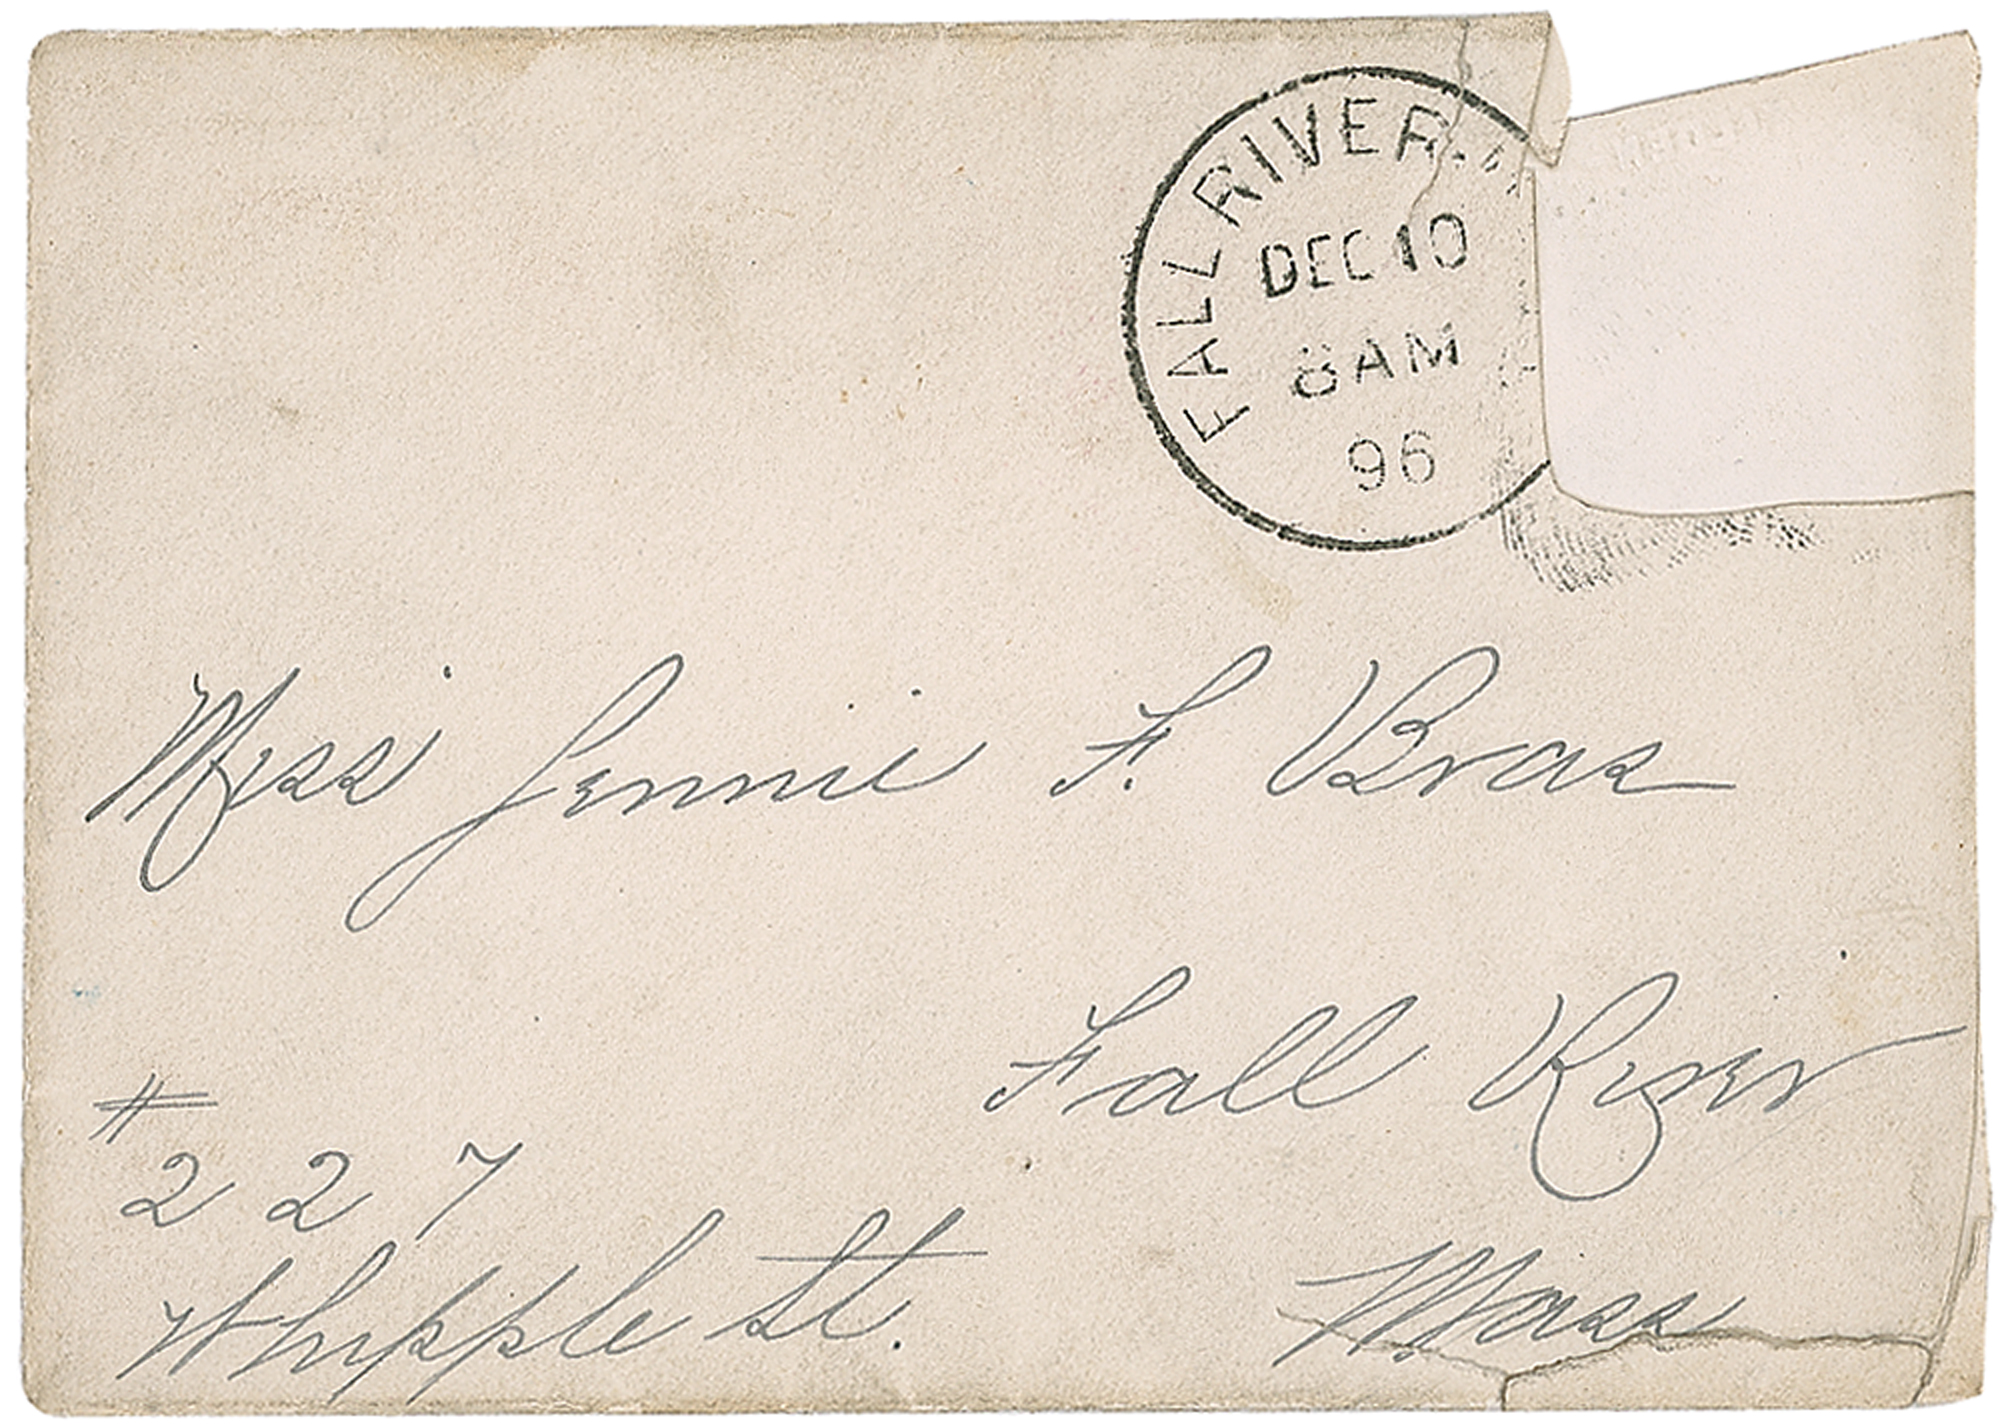 FALL RIVER.
DEC 10
8AM
96
Miss Jennie F. Bras
Fall River
#
227
Whipple St.
Mass